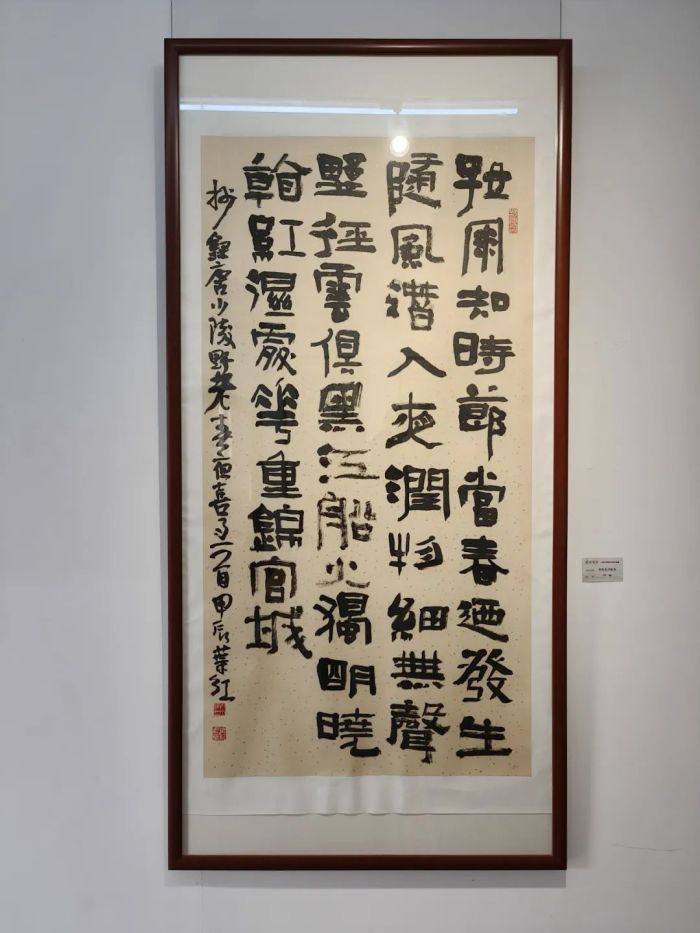 好雨知時節當春迺發生
隨風潛入夜潤物細無聲
野徑雲俱黑江船火獨明曉
看紅濕處花重錦官城
抄録唐少陵野老春夜喜雨一首甲辰葉紅